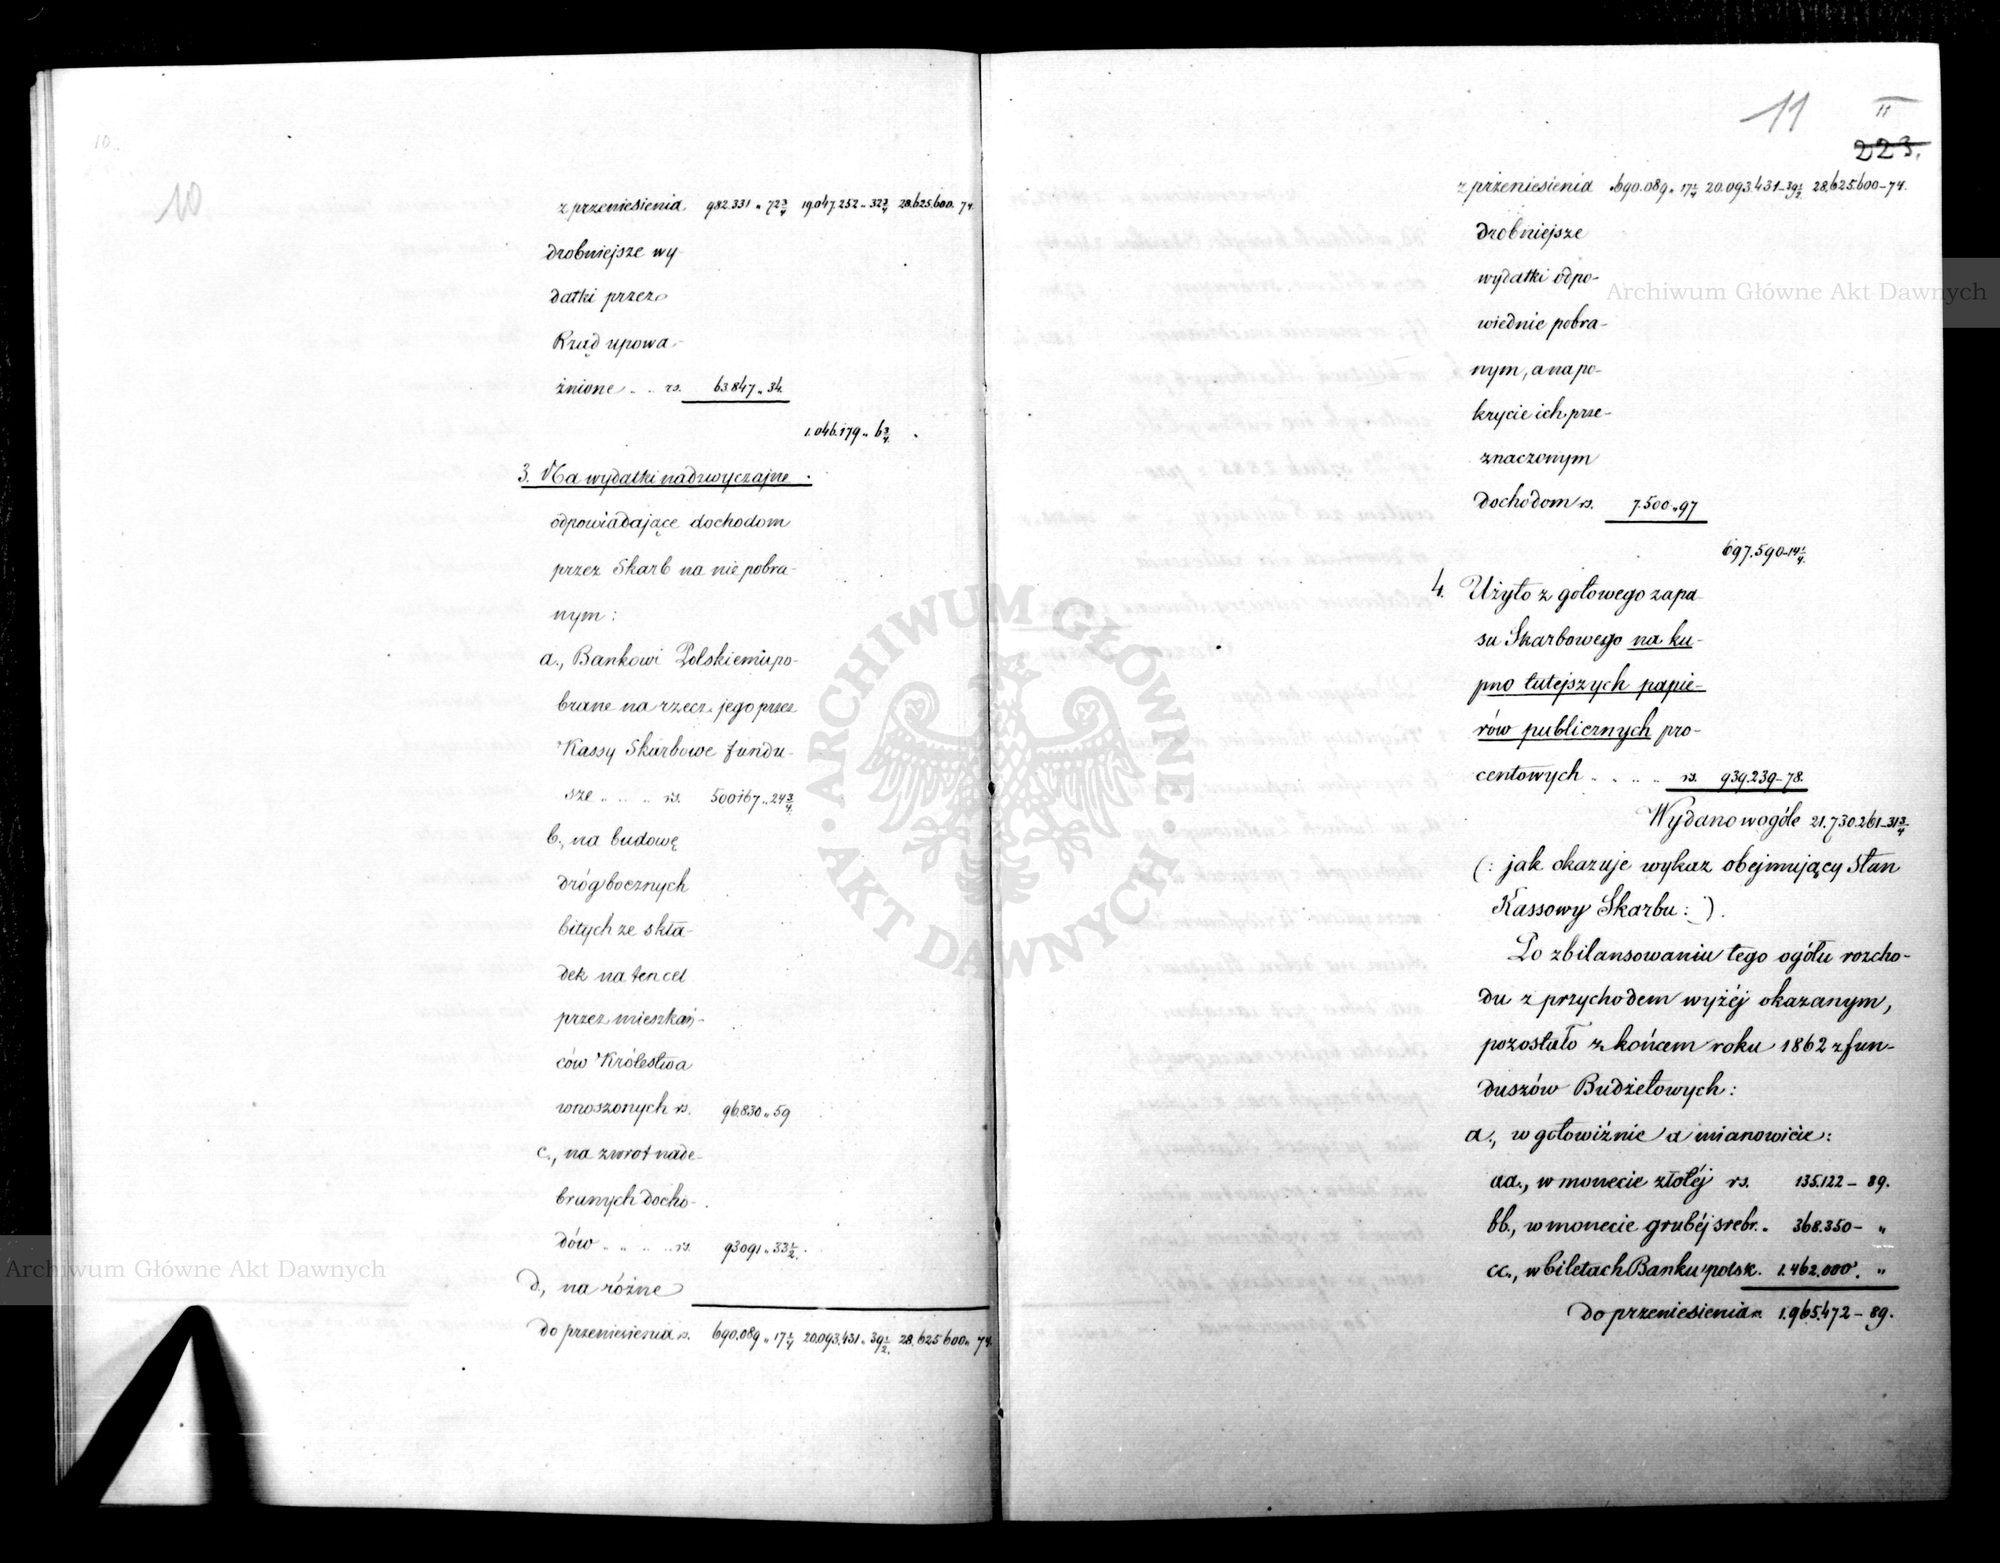 10
z przeniesienia 982.331 „ 72 3/4 19.047.252 „ 32 3/4 28.625.600. 74.
drobniejsze wy-
datki przez
Rząd upowa-
żnione „ „ rs. 63.847 „ 34.
1.046.179 „ 6 3/4.
3. Na wydatki nadzwyczajne
odpowiadające dochodom
przez Skarb na nie pobra-
nym:
a., Bankowi Polskiemu po-
brane na rzecz jego przez
Kassy Skarbowe fundu-
sze „ „ „ rs. 500167 „ 24 3/4.
b., na budowę
dróg bocznych
bitych ze skła-
dek na ten cel
przez mieszkań-
ców Królestwa
wnoszonych rs. 96.830 „ 59
c., na zwrot nade-
branych docho-
dów „ „ „ „ rs. 93091 „ 33 1/2.
d., na różne
do przeniesienia rs. 690.089 „ 17 1/4 20.093.431 „ 39 1/2. 28.625600 „ 74.
11
11
223.
z przeniesienia 690.089 „ 17 1/4 20.093.431 – 39 1/2 28.625.600 – 74.
drobniejsze
wydatki odpo-
wiednie pobra-
nym, a na po-
krycie ich prze-
znaczonym
dochodom rs. 7.500 „ 97
697.590 – 14 1/4.
4. Użyto z gotowego zapa-
su Skarbowego na ku-
pno tutejszych papie-
rów publicznych pro-
centowych „ „ „ „ rs. 939.239 – 78.
Wydano wogóle 21.730.261 – 31 3/4
(: jak okazuje wykaz obejmujący Stan
Kassowy Skarbu :).
Po zbilansowaniu tego ogółu rozcho-
du z przychodem wyżéj okazanym,
pozostało z końcem roku 1862 z fun-
duszów Budżetowych:
a., w gotowiźnie a mianowicie:
aa., w monecie złotéj rs. 135.122 – 89.
bb., w monecie grubéj srebr. „ 368.350 – „
cc., w biletach Banku polsk. 1.462.000. „
do przeniesienia rs. 1.965.472 – 89.
Archiwum Główne Akt Dawnych
Archiwum Główne Akt Dawnych
ARCHIWUM GŁÓWNE
AKT DAWNYCH